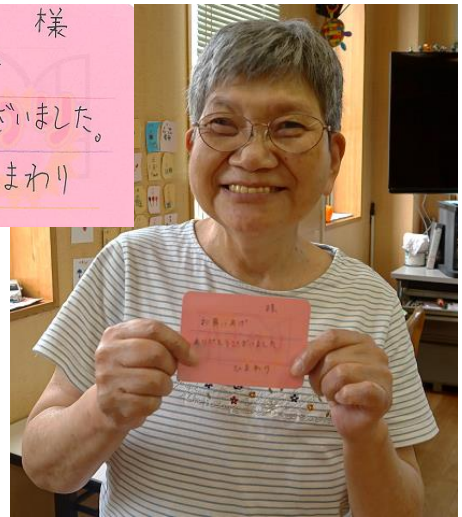 様
ざいました。
まわり
様
お買い上げ
ありがとうございました。
ひまわり